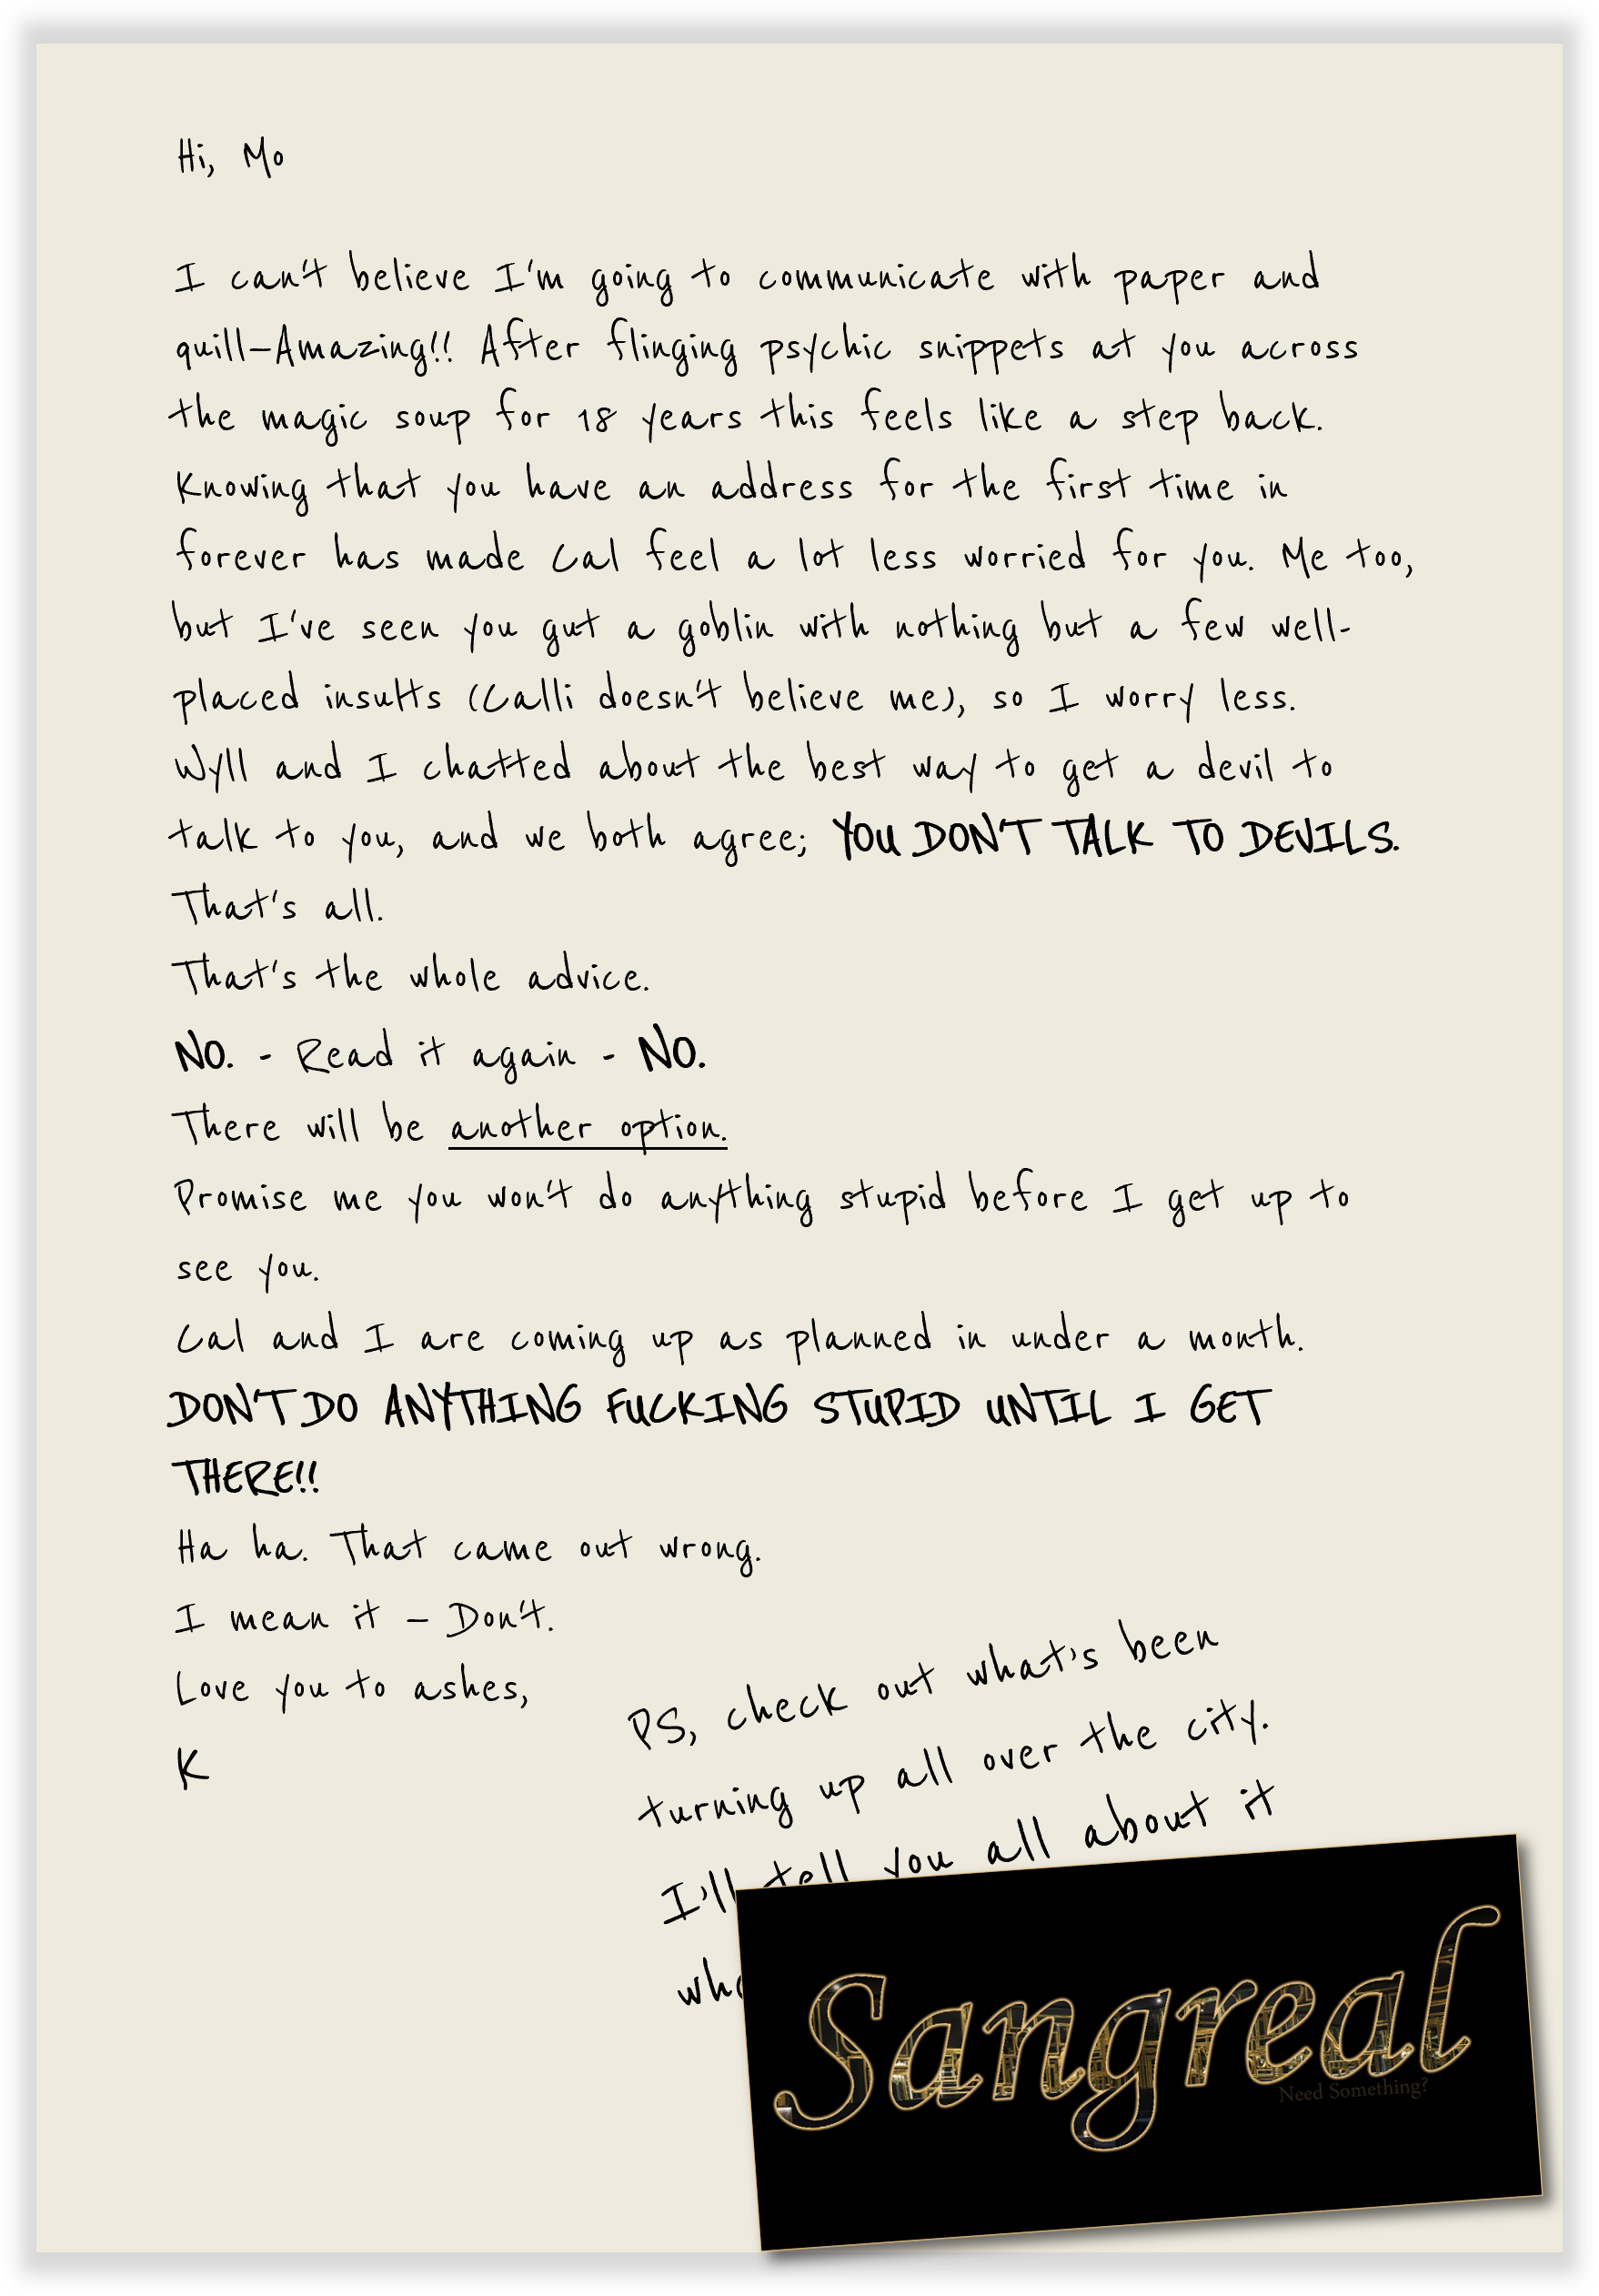 Hi, Mo
I can't believe I'm going to communicate with paper and
quill—Amazing!! After flinging psychic snippets at you across
the magic soup for 18 years this feels like a step back.
Knowing that you have an address for the first time in
forever has made Cal feel a lot less worried for you. Me too,
but I've seen you gut a goblin with nothing but a few well-
placed insults (Calli doesn't believe me), so I worry less.
Wyll and I chatted about the best way to get a devil to
talk to you, and we both agree; YOU DON'T TALK TO DEVILS.
That's all.
That's the whole advice.
NO. - Read it again - NO.
There will be another option.
Promise me you won't do anything stupid before I get up to
see you.
Cal and I are coming up as planned in under a month.
DON'T DO ANYTHING FUCKING STUPID UNTIL I GET
THERE!!
Ha ha. That came out wrong.
I mean it – Don't.
Love you to ashes,
K
PS, check out what's been
turning up all over the city.
I'll tell you all about it
Sangreal
Need Something?